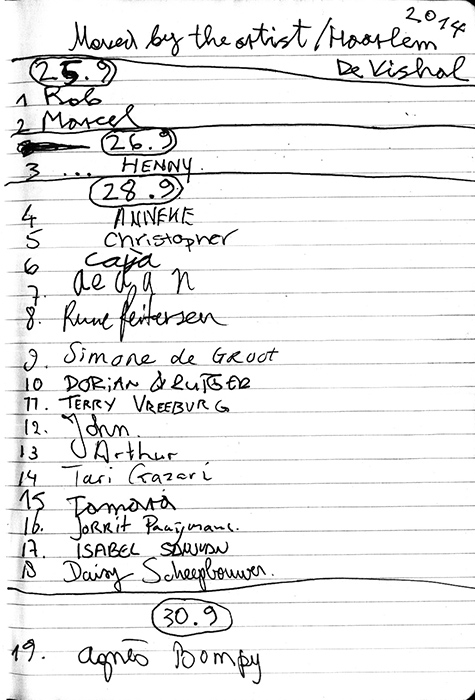 2014
Moved by the artist / Haarlem
De Vishal
25.9
1 Rob
2 Marcel
26.9
3 ... HENNY.
28.9
4 ANNEKE
5 Christopher
6
7.
8. Rune Peitersen
9. Simone de GROOT
10 DORiAN & RUTGER
11. TERRY VREEBURG
12. John.
13 Arthur
14 Tari Gazari
15 Tamara
16. JORRIT Paaijmans.
17. ISABEL
18 Daisy Scheepbouwer.
30.9
19. agnès Bompy